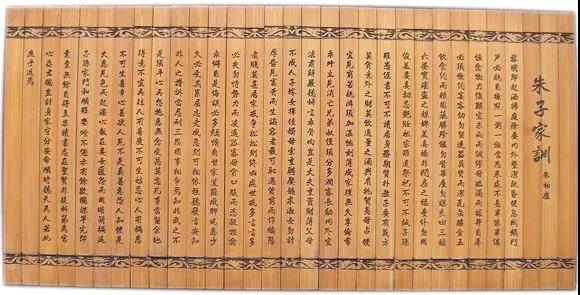 朱子家訓
朱柏廬
黎明即起灑掃庭除要內外整潔既昏便息關鎖門
戶必親自檢點一粥一飯當思來處不易半絲半縷
恆念物力維艱宜未雨而綢繆毋臨渴而掘井自奉
必須儉約宴客切勿留連器具質而潔瓦缶勝金玉
飲食約而精園蔬勝珍饈勿營華屋勿謀良田三姑
六婆實淫盜之媒婢美妾嬌非閨房之福童僕勿用
俊美妻妾切忌艷妝祖宗雖遠祭祀不可不誠子孫
雖愚經書不可不讀居身務期質樸教子要有義方
莫貪意外之財莫飲過量之酒與肩挑貿易毋佔便
宜見窮苦親鄰須加溫恤刻薄成家理無久享倫常
乖舛立見消亡兄弟叔侄須分多潤寡長幼內外宜
法肅辭嚴聽婦言乖骨肉豈是丈夫重資財薄父母
不成人子嫁女擇佳婿毋索重聘娶媳求淑女勿計
厚奩見富貴而生諂容者最可恥遇貧窮而作驕態
者賤莫甚居家戒爭訟訟則終凶處世戒多言言多
必失勿恃勢力而凌逼孤寡毋貪口腹而恣殺牲禽
乖僻自是悔誤必多頹惰自甘家道難成狎暱惡少
久必受其累屈志老成急則可相依輕聽發言安知
非人之譖訴當忍耐三思因事相爭焉知非我之不
是須平心再想施惠無念受恩莫忘凡事當留餘地
得意不宜再往人有喜慶不可生妒忌心人有禍患
不可生喜幸心善欲人見不是真善惡恐人知便是
大惡見色而起淫心報在妻女匿怨而用暗箭禍延
子孫家門和順雖饔飧不濟亦有餘歡國課早完即
囊橐無餘自得至樂讀書志在聖賢非徒科第為官
心存君國豈計身家守分安命順時聽天為人若此
庶乎近焉